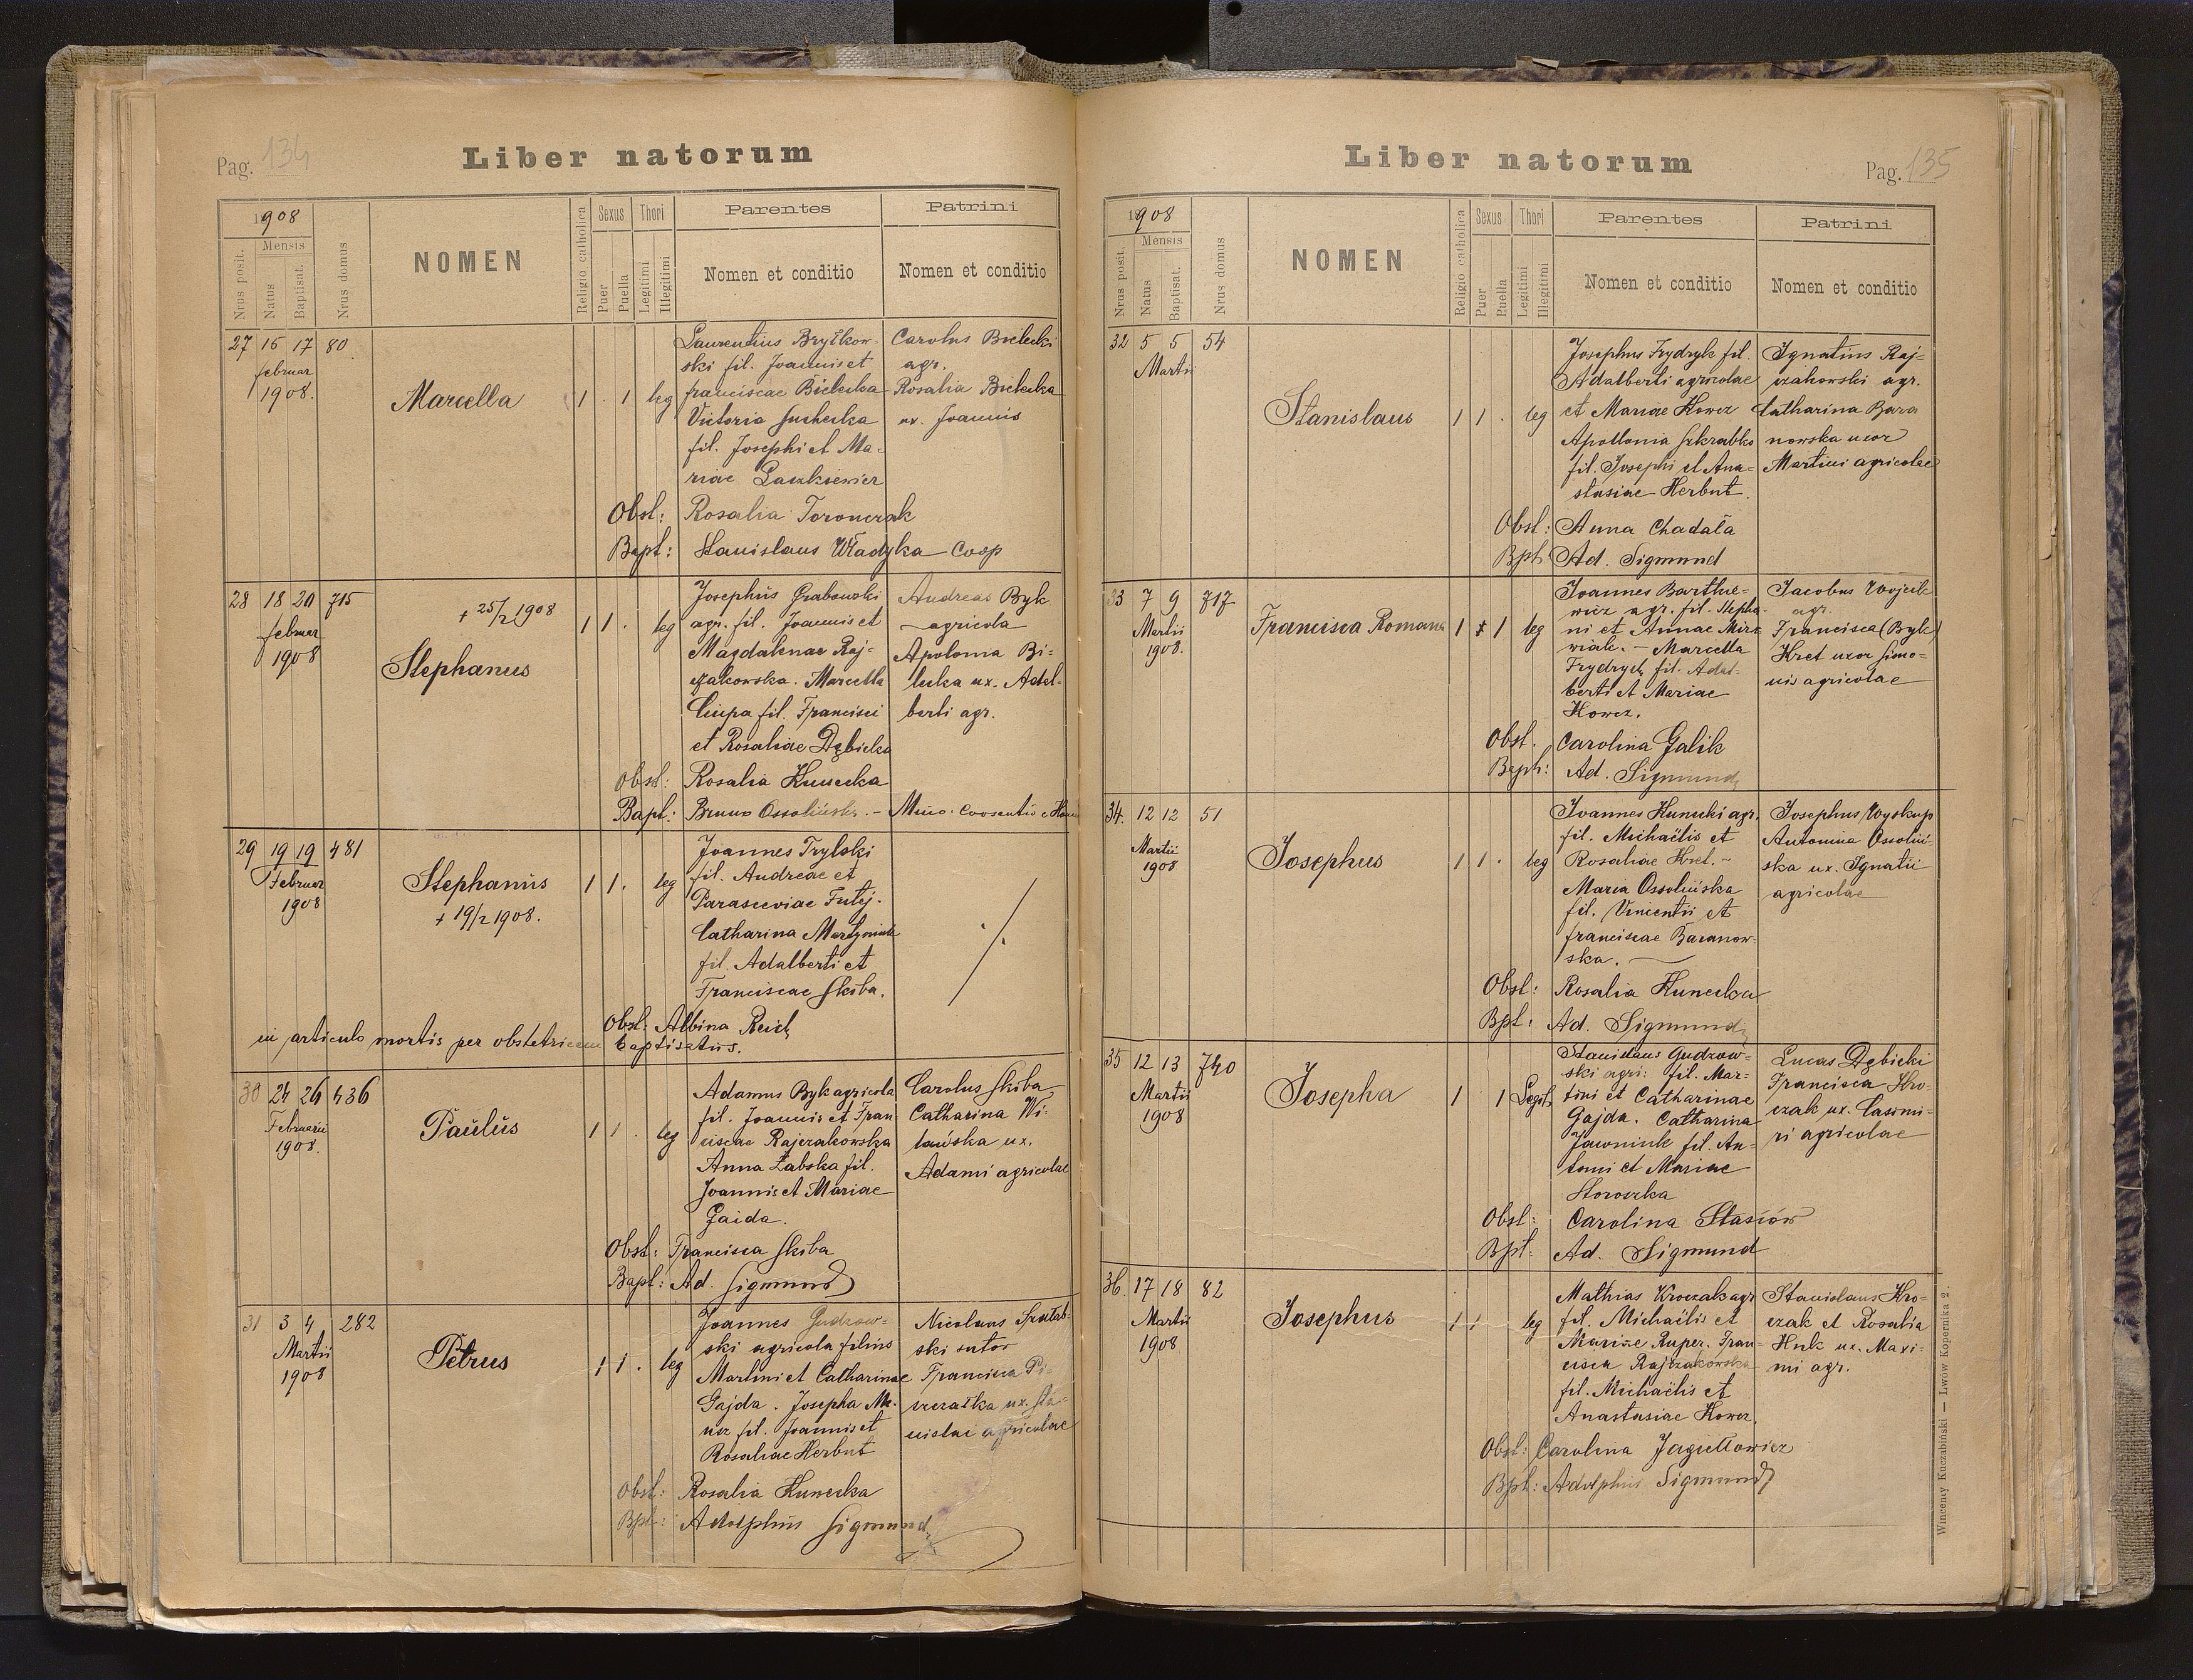 Pag. 134
Liber natorum
1908
Nrus posit.
Mensis
Natus
Baptisat.
Nrus domus
NOMEN
Religio catholica
Sexus
Puer
Puella
Thori
Legitimi
Illegitimi
Parentes
Nomen et conditio
Patrini
Nomen et conditio
27 16 17 80
februar
1908.
Marcella
1 . 1 leg
Laurentius Bryłkow-
ski fil. Joannis et
franciscae Bielecka
Victoria Suchecka
fil. Josephi et Ma-
riae Laszkiewicz
Carolus Bielecki
agr.
Rosalia Bielecka
ux. Joannis
Obst: Rosalia Toronczak
Bapt: Stanislaus Władyka Coop
28 18 20 715
februar
1908
+ 25/2 1908
Stephanus
1 1 . leg
Josephus Grabowski
agr. fil. Joannis et
Magdalenae Raj-
czakowska. Marcella
Ciupa fil. Francisci
et Rosaliae Dębicka
Andreas Byk
agricola
Apolonia Bi-
lecka ux. Adal-
berti agr.
Obst: Rosalia Kunecka
Bapt: Bruno Ossoliński. -
29 19 19 481
Februar
1908
Stephanus
+ 19/2 1908.
1 1 . leg
Joannes Trylski
fil. Andreae et
Parasceviae Futyj.
Catharina
fil. Adalberti et
Franciscae Skiba.
Obst. Albina Reich
in articulo mortis per obstetricem baptisatus.
30 24 26 436
Februarii
1908.
Paulus
1 1 . leg
Adamus Byk agricola
fil. Joannis et Fran
ciscae Rajczakowska
Anna Żabska fil.
Joannis et Mariae
Gajda.
Carolus Skiba
Catharina Wi-
lańska ux.
Adami agricolae
Obst: Francisca Skiba
Bapt: Ad. Sigmund
31 3 4 282
Martii
1908
Petrus
1 1 . leg
Joannes Gudzow-
ski agricola filius
Martini et Catharinae
Gajda. Josepha
fil. Joannis et
Rosaliae Herbut
Nicolaus
ski sutor
Francisca Pi-
ux. Sta-
nislai agricolae
Obst: Rosalia Kunecka
Bpt: Adolphus Sigmund
Liber natorum
Pag. 135
1908
Nrus posit.
Mensis
Natus
Baptisat.
Nrus domus
NOMEN
Religio catholica
Sexus
Puer
Puella
Thori
Legitimi
Illegitimi
Parentes
Nomen et conditio
Patrini
Nomen et conditio
32 5 5 54
Martii
Stanislaus
1 1 . leg
Josephus Frydryk fil.
Adalberti agricolae
et Mariae Kowcz
Apollonia Szkrabko
fil. Josephi et Ana-
stasiae Herbut.
Ignatius Raj-
czakowski agr.
Catharina Bara
nowska uxor
Martini agricolae
Obst: Anna Chadała
Bpt. Ad. Sigmund
33 7 9 717
Martii
1908.
Francisca Romana
1 1 leg
Joannes Barthe-
wicz agr. fil. Stepha-
ni et Annae Mirz
wiak. - Marcella
Frydrych fil. Adal-
berti et Mariae
Kowcz.
Jacobus Wojcik
agr.
Francisca (Byk)
Kret uxor Simo-
nis agricolae
Obst. Carolina Galik
Bapt: Ad. Sigmund
34. 12 12 51
Martii
1908
Josephus
1 1 . leg
Joannes Kunecki agr.
fil. Michaëlis et
Rosaliae Kret. -
Maria Ossolińska
fil. Vincentii et
franciscae Baranow-
ska.
Josephus Wyskup
Antonina Ossoliń-
ska ux. Ignatii
agricolae
Obst: Rosalia Kunecka
Bpt: Ad. Sigmund
35 12 13 740
Martii
1908
Josepha
1 1 Legit
Stanislaus Gudzow-
ski agri: fil. Mar-
tini et Catharinae
Gajda. Catharina
Jawniuk fil. An-
toni et Mariae
Storoszka
Lucas Dębicki
Francisca Kro-
czak ux. Casimi-
ri agricolae
Obst: Carolina Stasiów
Bpt: Ad. Sigmund
36. 17 18 82
Martii
1908
Josephus
1 1 leg
Mathias Kroczak agr
fil. Michaëlis et
Mariae Ruper. Fran-
cisca Rajczakowska
fil. Michaëlis et
Anastasiae Kowcz.
Stanislaus Kro-
czak et Rosalia
Huk ux. Maxi-
mi agr.
Obst: Carolina Jagiełłowicz
Bpt: Adolphus Sigmund
Wincenty Kuczabiński — Lwów Kopernika 2.